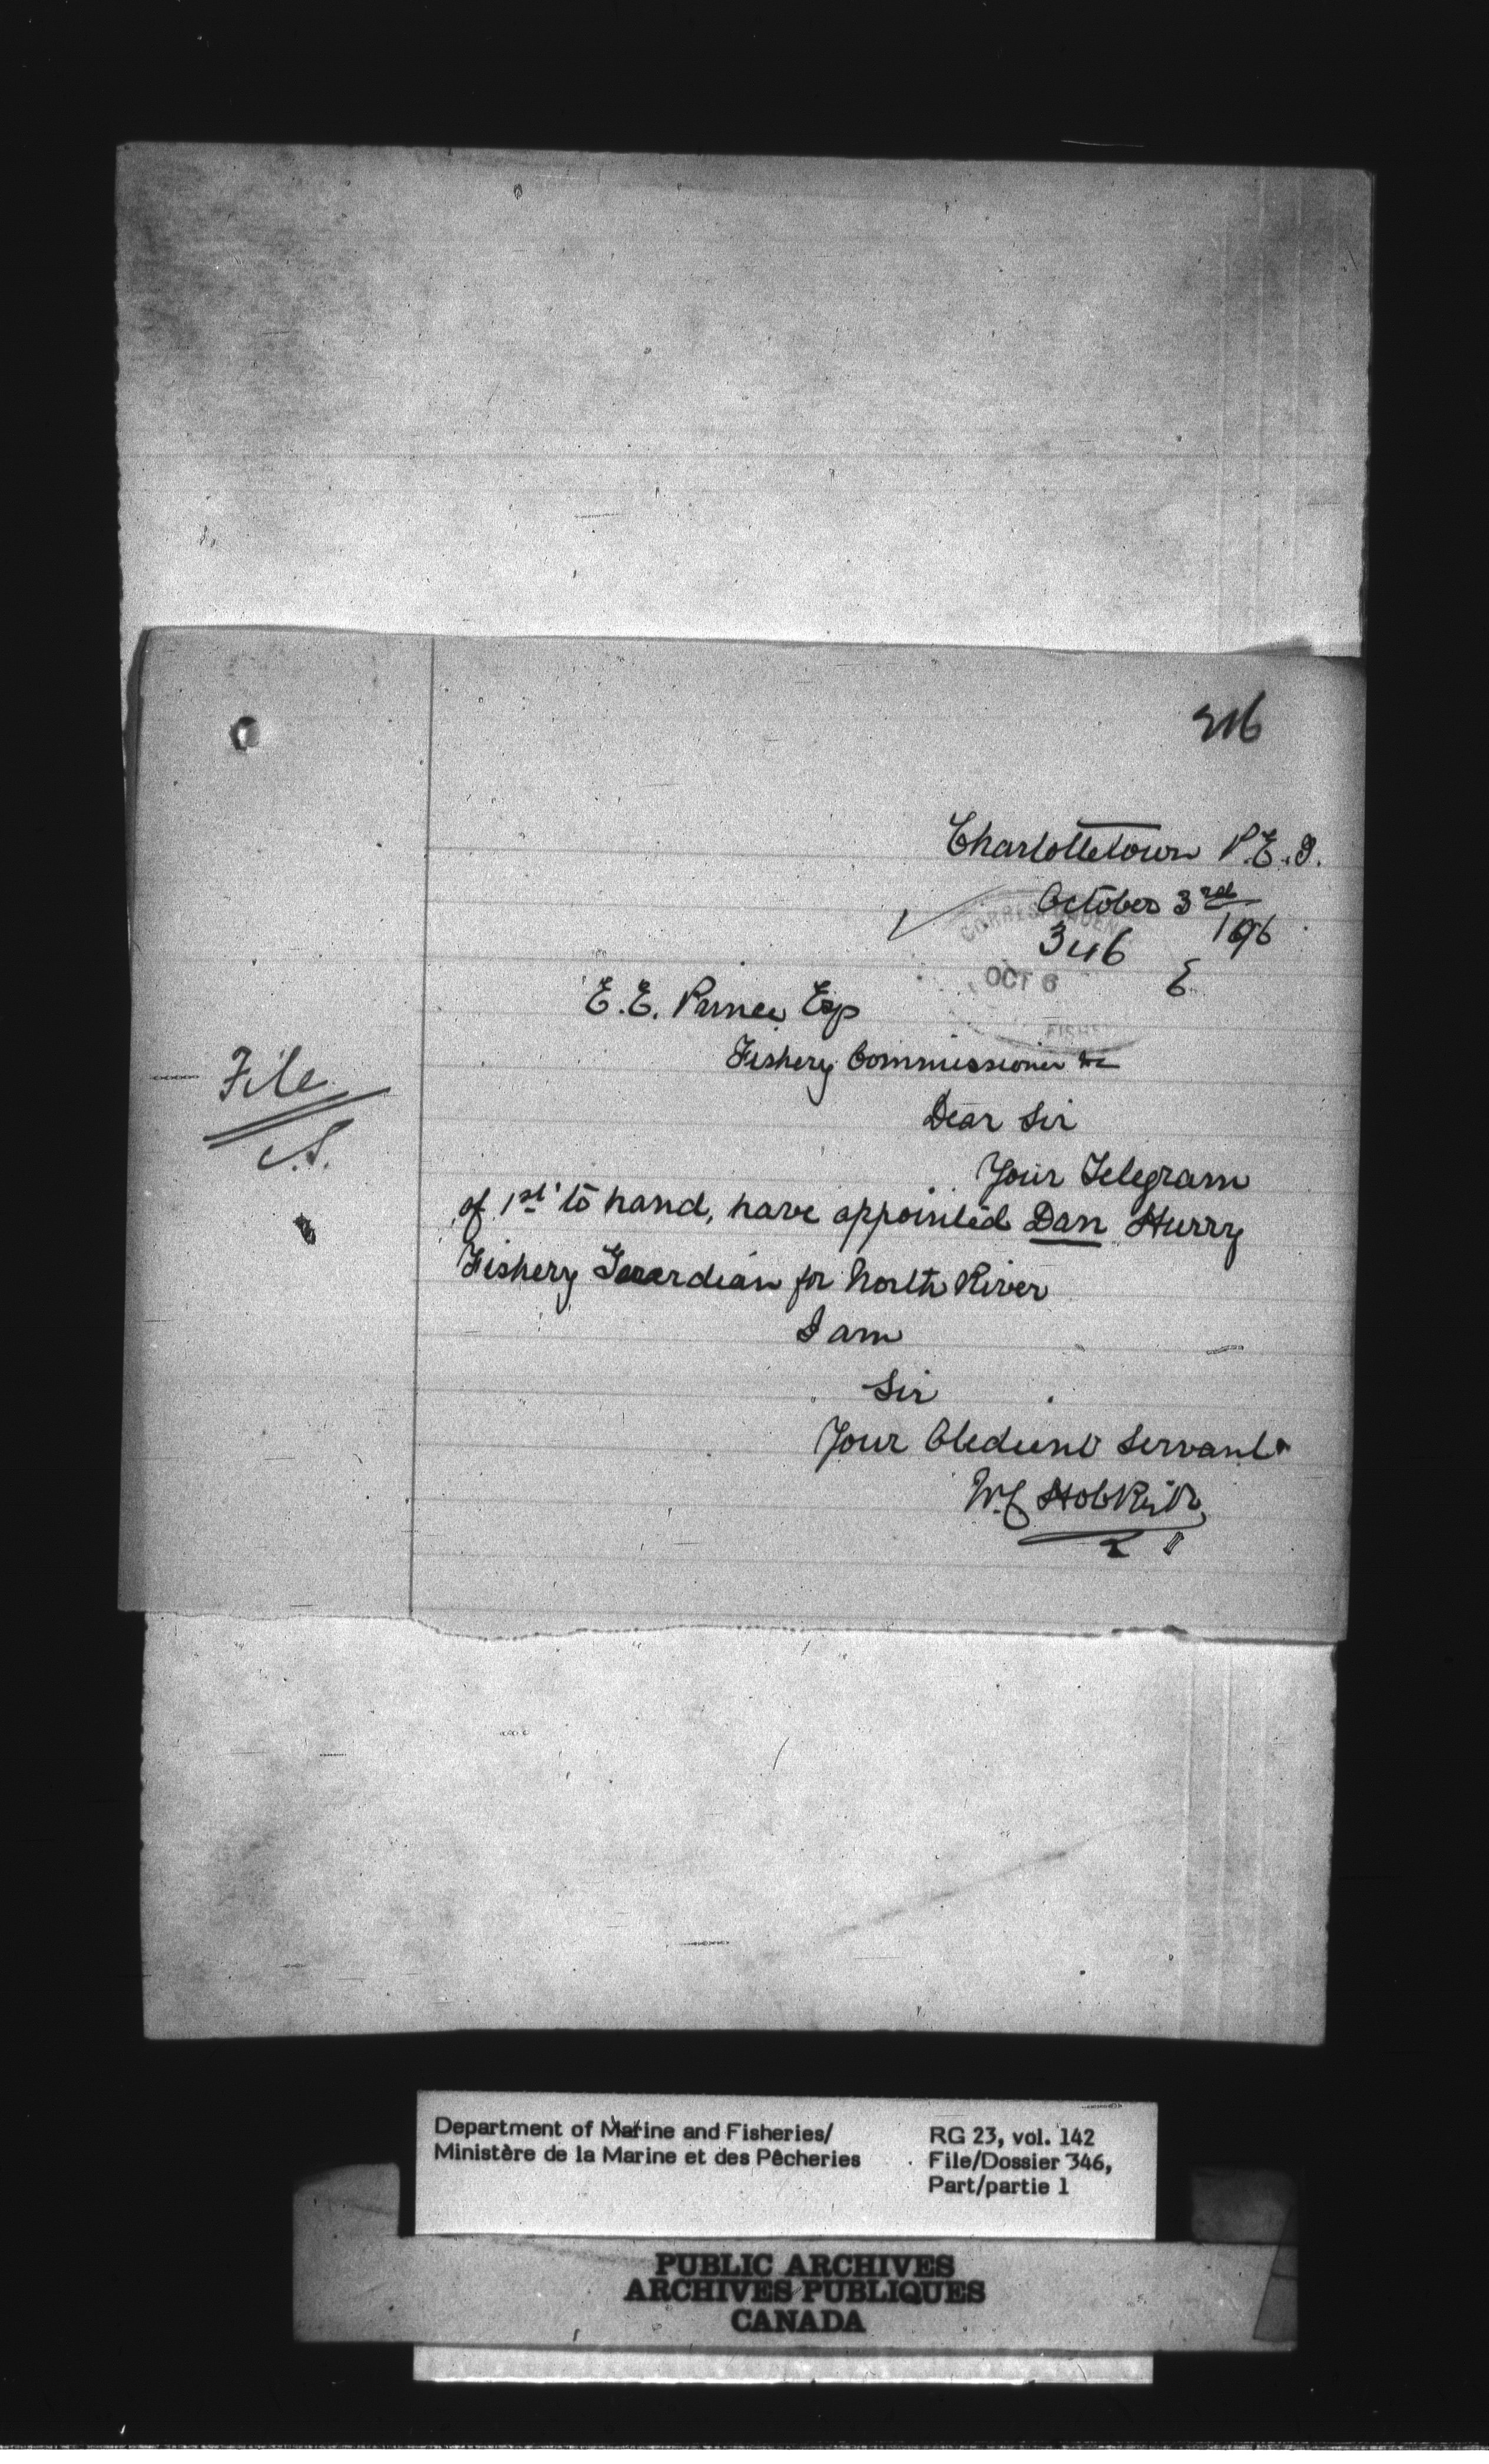 Charlottetown P.E.I.
October 3rd
1896
CORRESPONDEN
346
OCT 6
FISHE
E.E. Prince Esq
Fishery Commissioner &c
File
Dear Sir
Your Telegram
of 1st to hand, have appointed Dan Hurry
Fishery Guardian for North River
I am
Sir
Your Obedient Servant
Department of Marine and Fisheries/
Ministère de la Marine et des Pêcheries
RG 23, vol. 142
File/Dossier 346,
Part/partie 1
PUBLIC ARCHIVES
ARCHIVES PUBLIQUES
CANADA